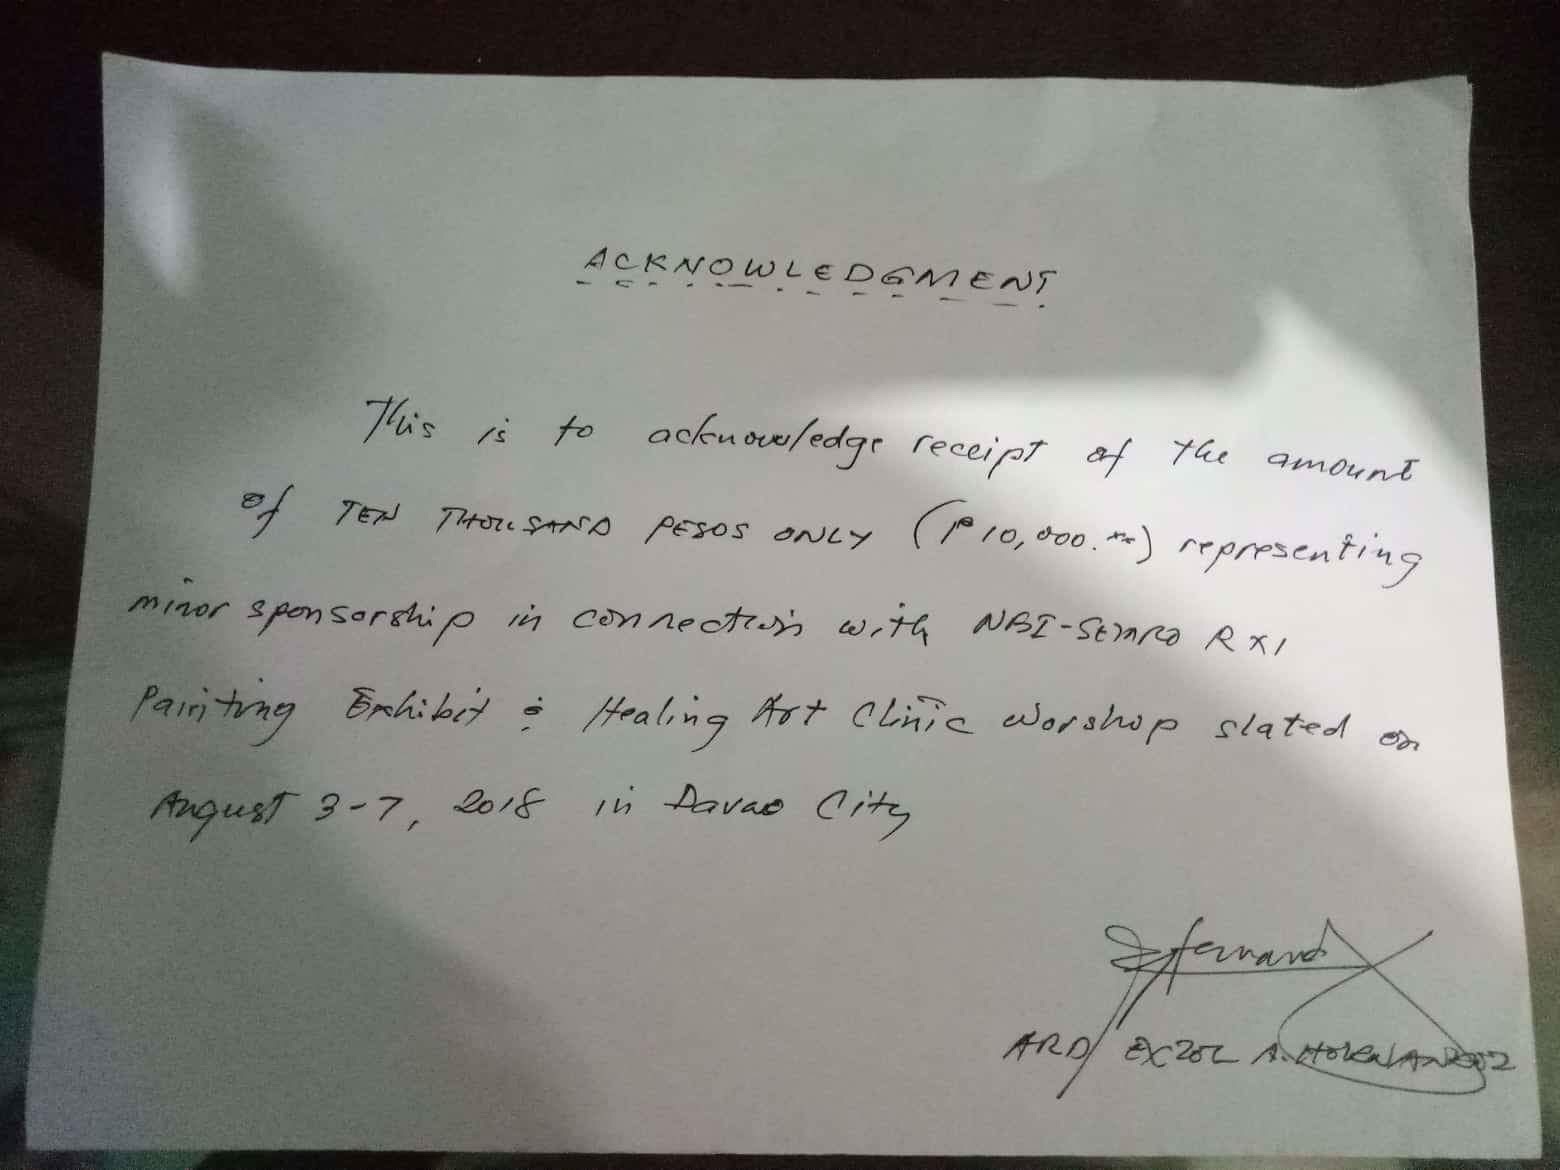 ACKNOWLEDGMENT
This is to acknowledge receipt of the amount
of TEN THOUSAND PESOS ONLY (₱10,000.**) representing
minor sponsorship in connection with NBI-SEMRO RXI
Painting Exhibit & Healing Art Clinic Worshop slated on
August 3-7, 2018 in Davao City
ARD/ A.